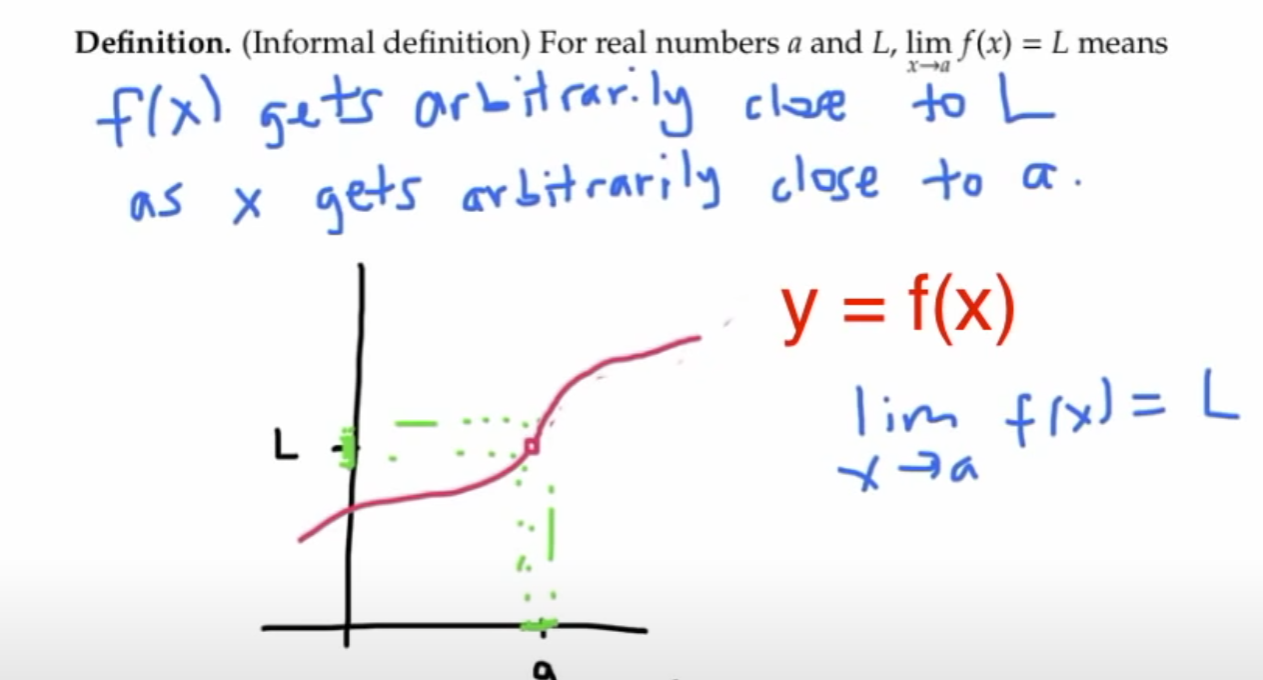 Definition. (Informal definition) For real numbers a and L, lim x→a f(x) = L means
f(x) gets arbitrarily close to L
as x gets arbitrarily close to a.
y = f(x)
lim x→a f(x) = L
L
a